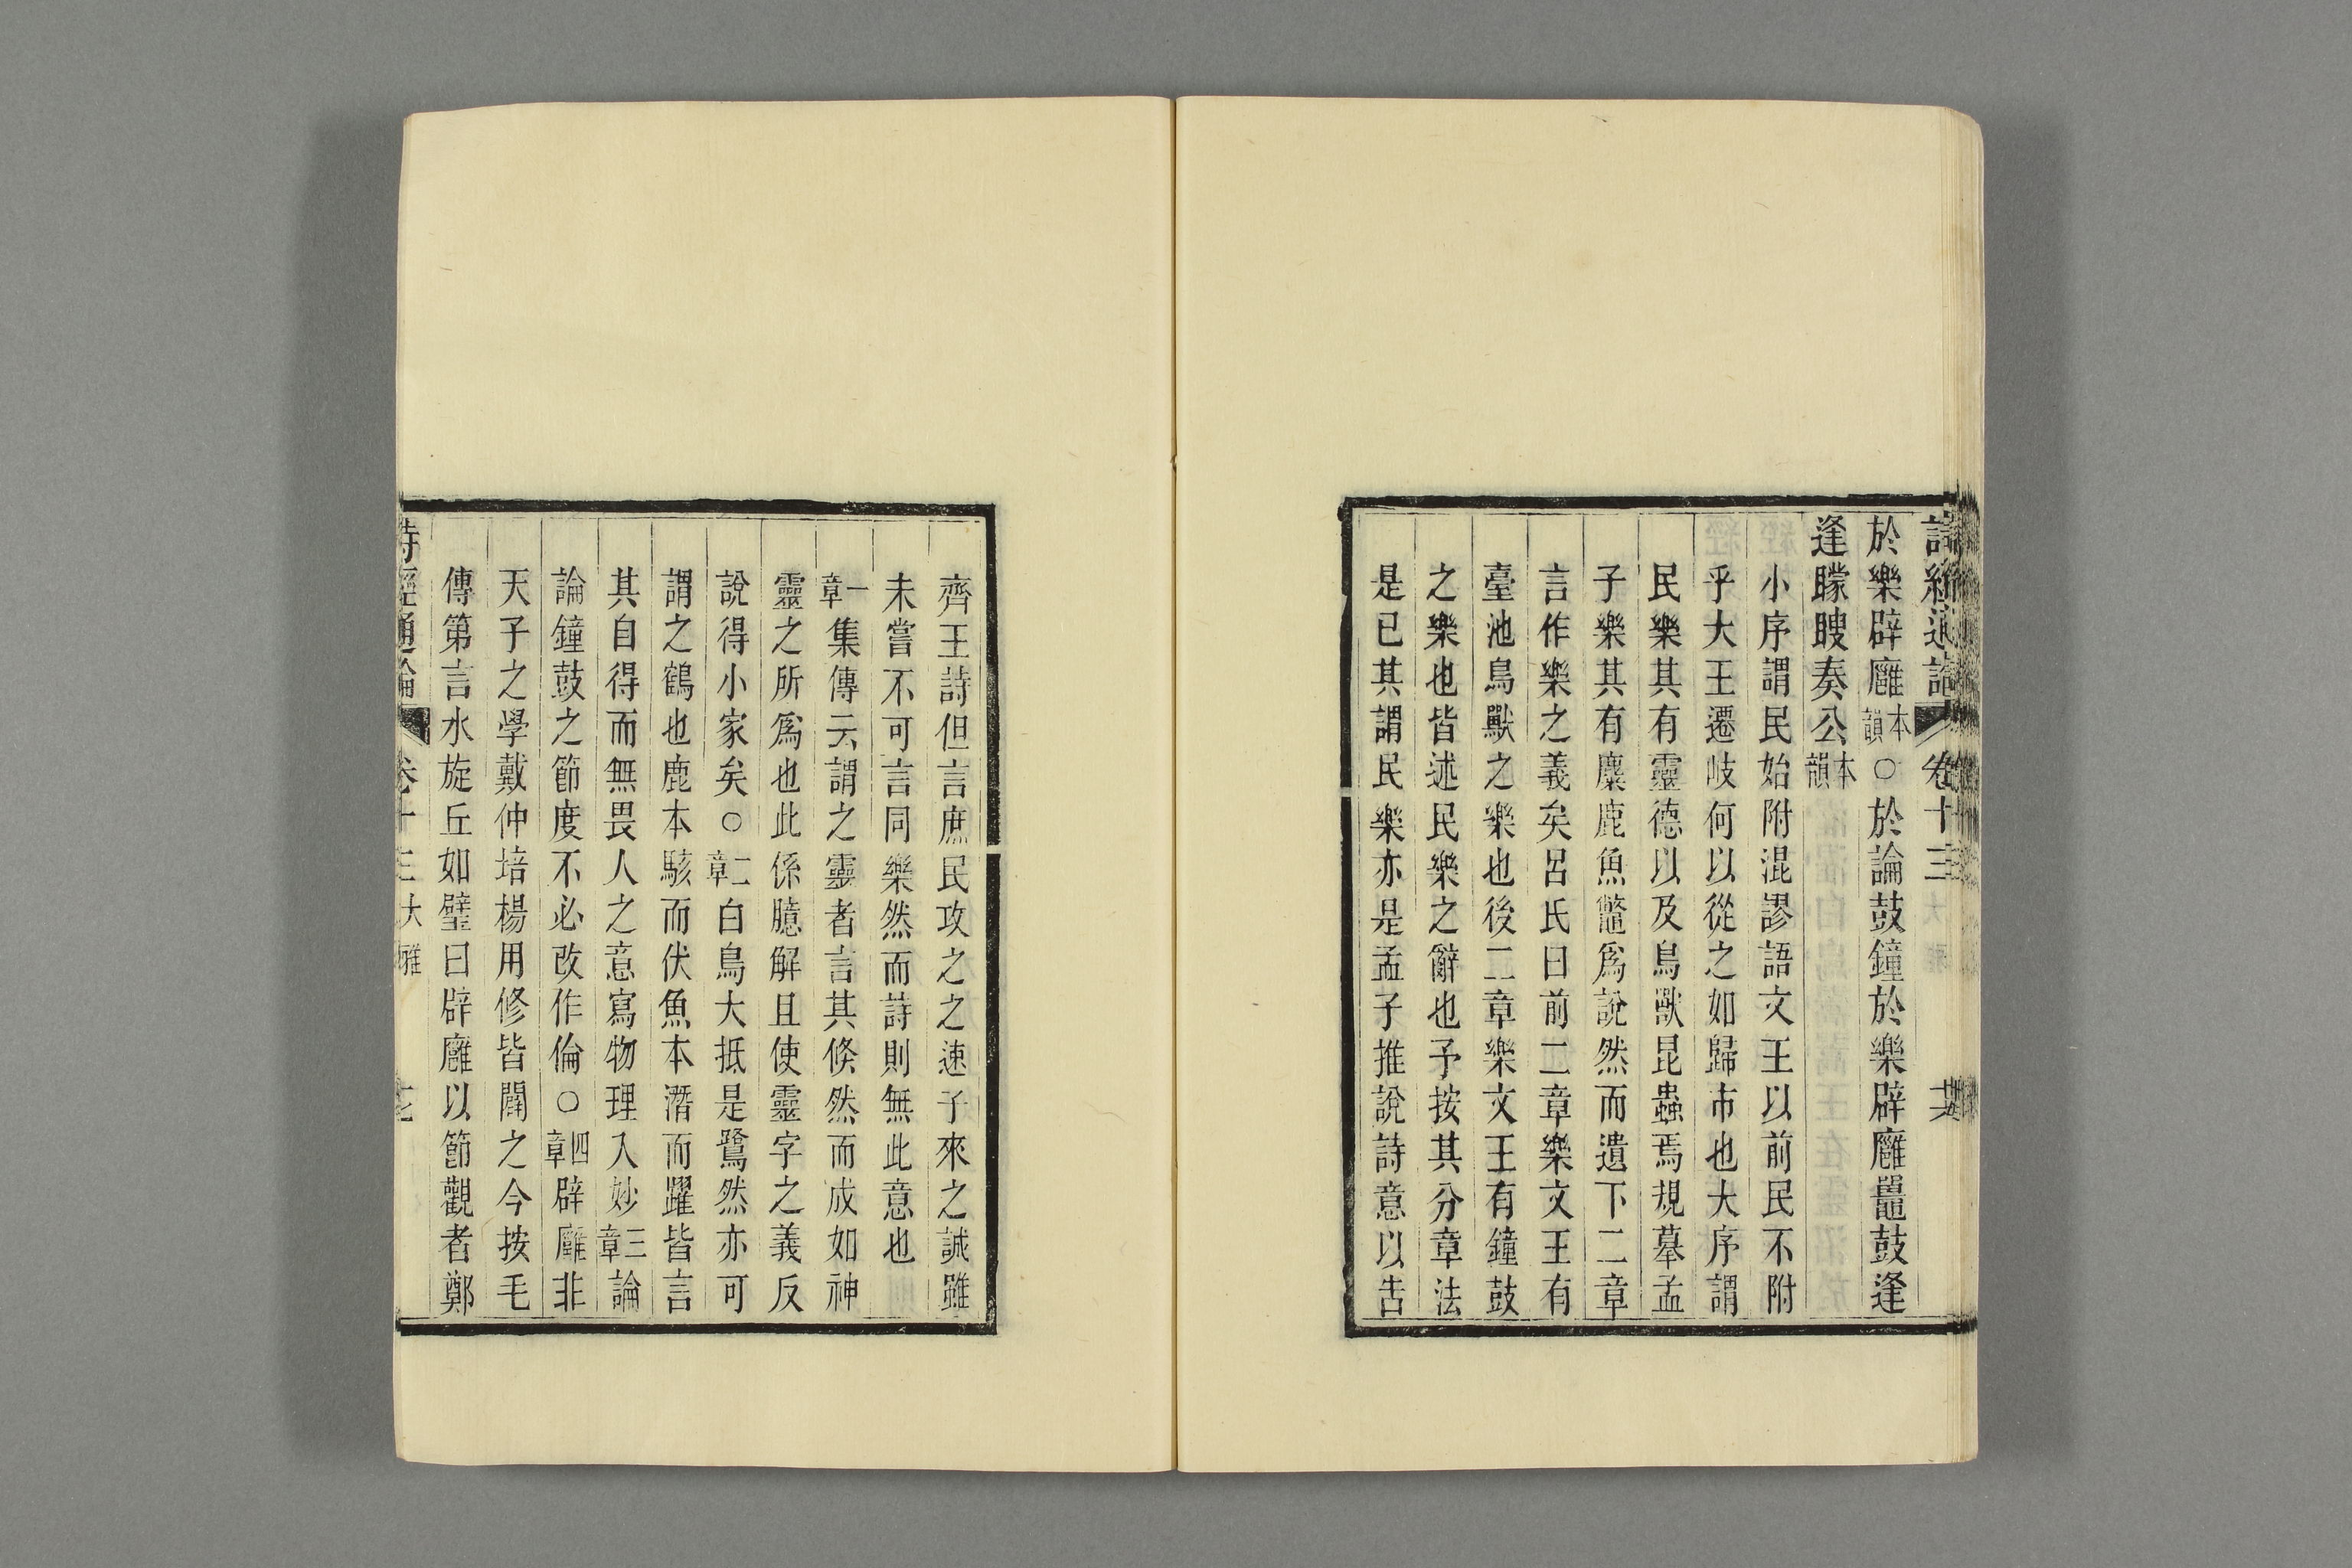 詩經通論 卷十三 大雅 其
於樂辟廱本韻○於論鼓鐘於樂辟廱鼉鼓逢
逢矇瞍奏公本韻
小序謂民始附混謬語文王以前民不附
乎大王遷岐何以從之如歸市也大序謂
民樂其有靈德以及鳥獸昆蟲焉規摹孟
子樂其有麋鹿魚鼈爲說然而遺下二章
言作樂之義矣呂氏曰前二章樂文王有
臺池鳥獸之樂也後二章樂文王有鐘鼓
之樂也皆述民樂之辭也予按其分章法
是已其謂民樂亦是孟子推說詩意以吿
齊王詩但言庶民攻之之速子來之誠雖
未嘗不可言同樂然而詩則無此意也
一章集傳云謂之靈者言其倏然而成如神
靈之所爲也此係臆解且使靈字之義反
說得小家矣○二章白鳥大抵是鷺然亦可
謂之鶴也鹿本駭而伏魚本潛而躍皆言
其自得而無畏人之意寫物理入妙三章論
論鐘鼓之節度不必改作倫○四章辟廱非
天子之學戴仲培楊用修皆闢之今按毛
傳第言水旋丘如璧曰辟廱以節觀者鄭
詩經通論 卷十三 大雅